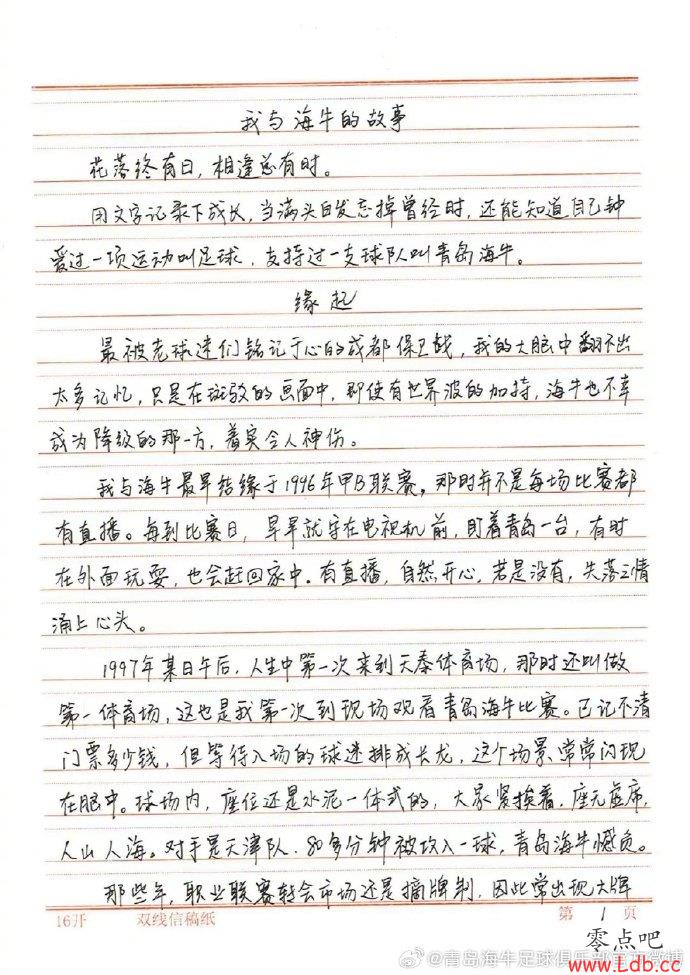 我与海牛的故事
花落终有日，相逢总有时。
用文字记录下成长，当满头白发忘掉曾经时，还能知道自己钟
爱过一项运动叫足球，支持过一支球队叫青岛海牛。
缘起
最被老球迷们铭记于心的成都保卫战，我的大脑中翻不出
太多记忆，只是在斑驳的画面中，即使有世界波的加持，海牛也不幸
成为降级的那一方，着实令人神伤。
我与海牛最早结缘于1996年甲B联赛，那时并不是每场比赛都
有直播。每到比赛日，早早就守在电视机前，盯着青岛一台，有时
在外面玩耍，也会赶回家中。有直播，自然开心，若是没有，失落之情
涌上心头。
1997年某日午后，人生中第一次来到天泰体育场，那时还叫做
第一体育场，这也是我第一次到现场观看青岛海牛比赛。已记不清
门票多少钱，但等待入场的球迷排成长龙，这个场景常常闪现
在眼中。球场内，座位还是水泥一体式的，大家紧挨着，座无虚席，
人山人海。对手是天津队，80多分钟被攻入一球，青岛海牛憾负。
那些年，职业联赛转会市场还是摘牌制，因此常出现大牌
16开 双线信稿纸 第 1 页
零点吧
@青岛海牛足球俱乐部官方微博
www.Ldb.cc